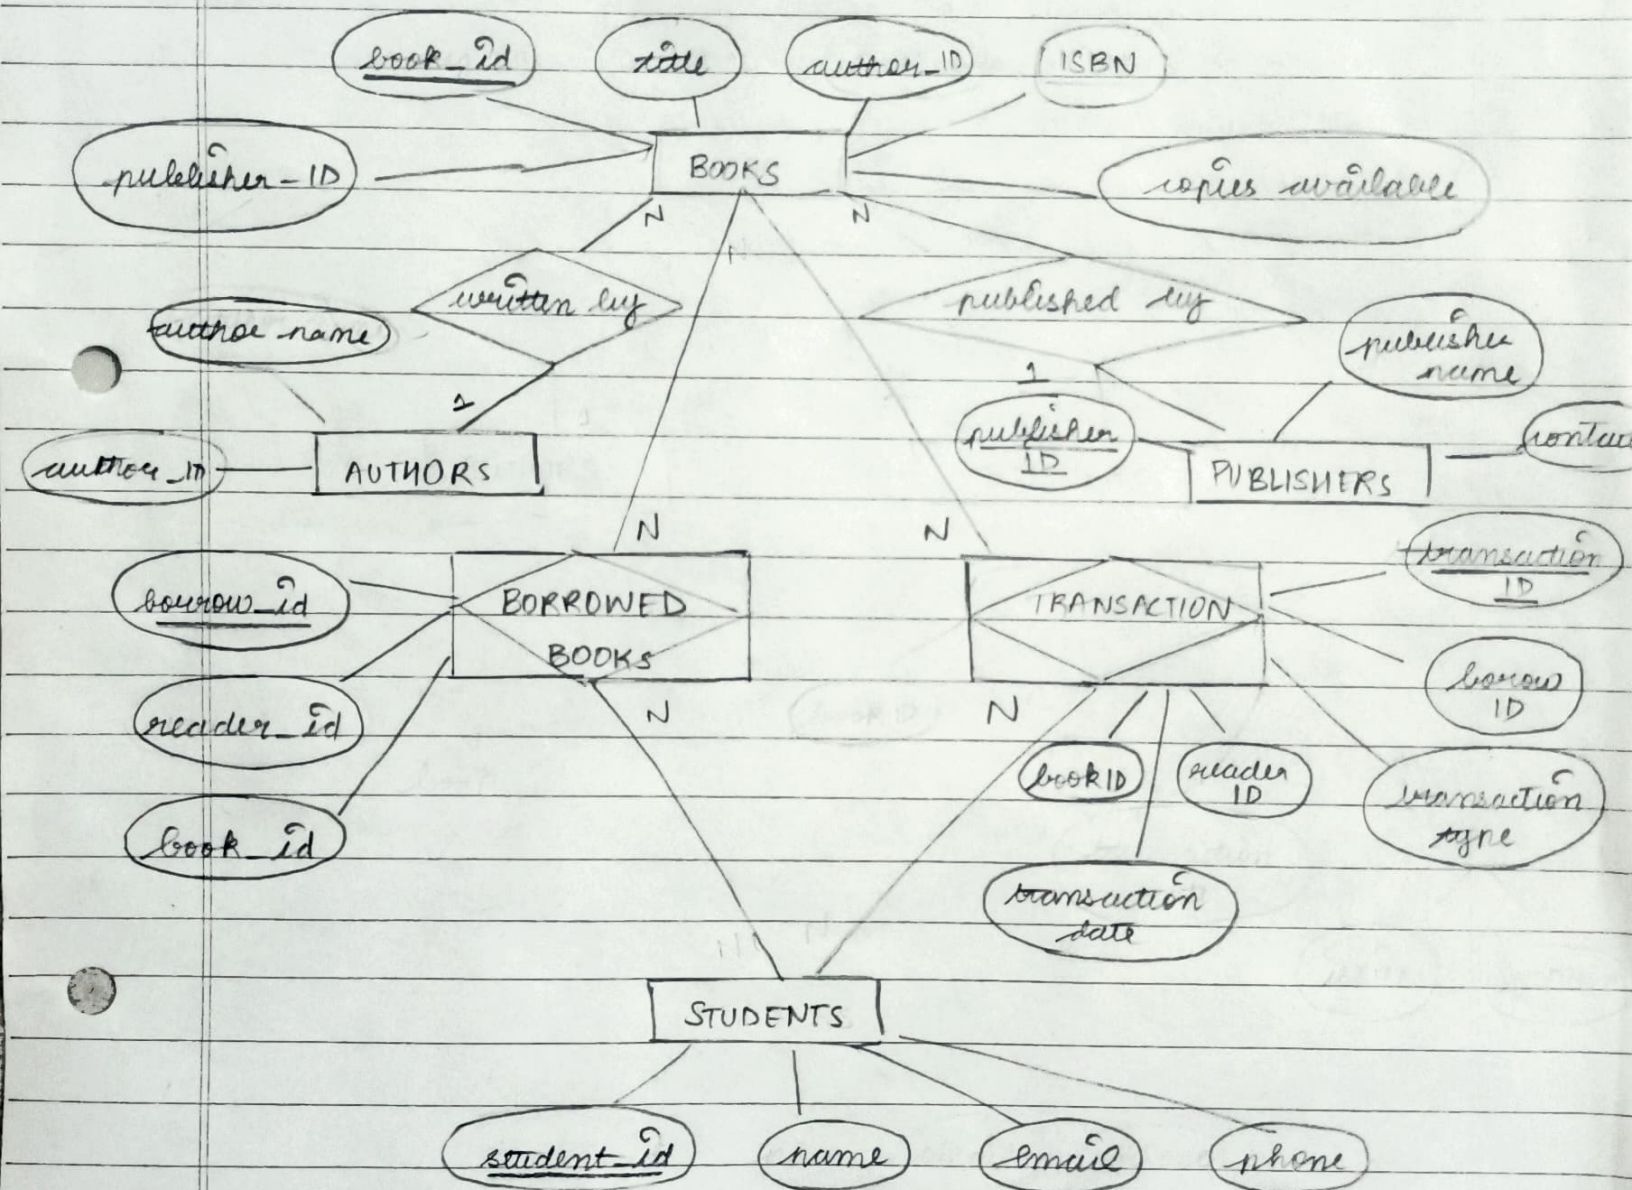 book_id
title
author_ID
ISBN
publisher-ID
BOOKS
copies available
N
N
N
written by
published by
author name
publisher
name
1
1
author_ID
AUTHORS
publisher
ID
PUBLISHERS
N
N
borrow_id
BORROWED
BOOKS
TRANSACTION
transaction
ID
borow
ID
reader_id
N
N
book ID
reader
ID
transaction
type
book_id
transaction
date
STUDENTS
student_id
name
email
phone